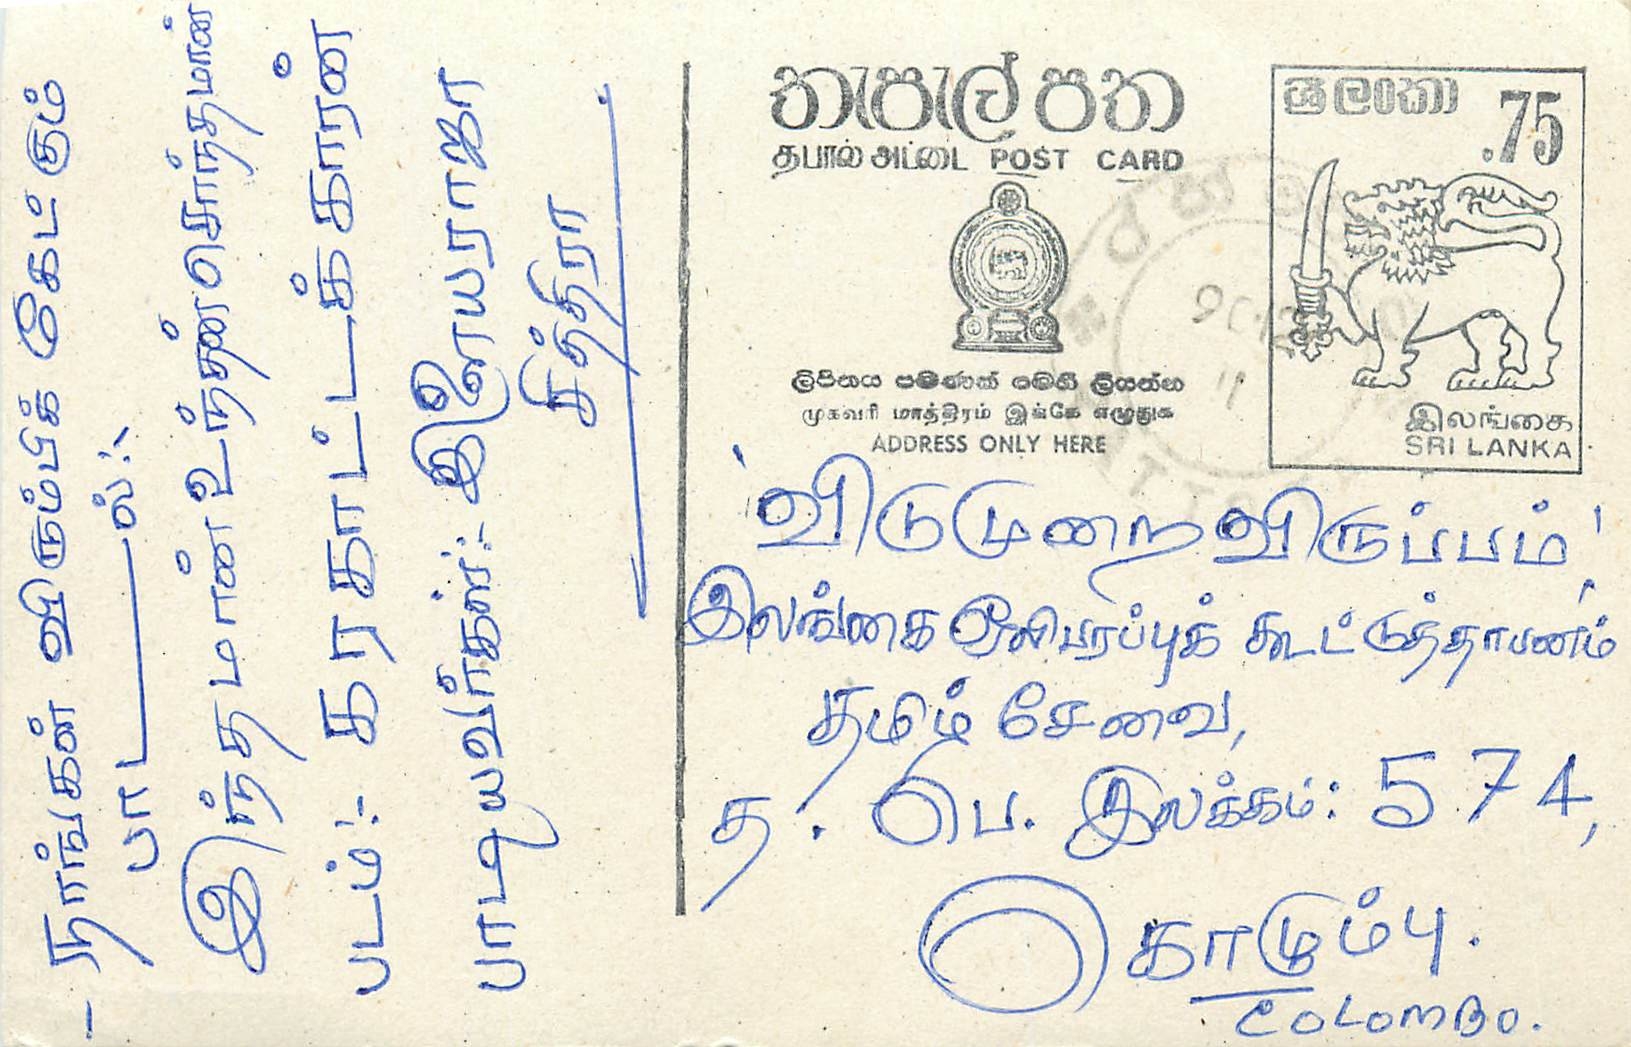 - நாங்கள் விரும்பிக் கேட்கும்
பாடல்:-
இந்தமான் உந்தன் சொந்தமான்
படம்:- கரகாட்டக்காரன்
பாடியவர்கள்:- இளையராஜா
சித்ரா
තැපැල් පත
தபால் அட்டை POST CARD
ලිපිනය පමණක් මෙහි ලියන්න
முகவரி மாத்திரம் இங்கே எழுதுக
ADDRESS ONLY HERE
ශ්‍රී ලංකා
.75
இலங்கை
SRI LANKA
'விடுமுறை விருப்பம்'
இலங்கை ஒலிபரப்புக் கூட்டுத்தாபனம்
தமிழ் சேவை,
த. பெ. இலக்கம்: 574,
கொழும்பு.
COLOMBO.